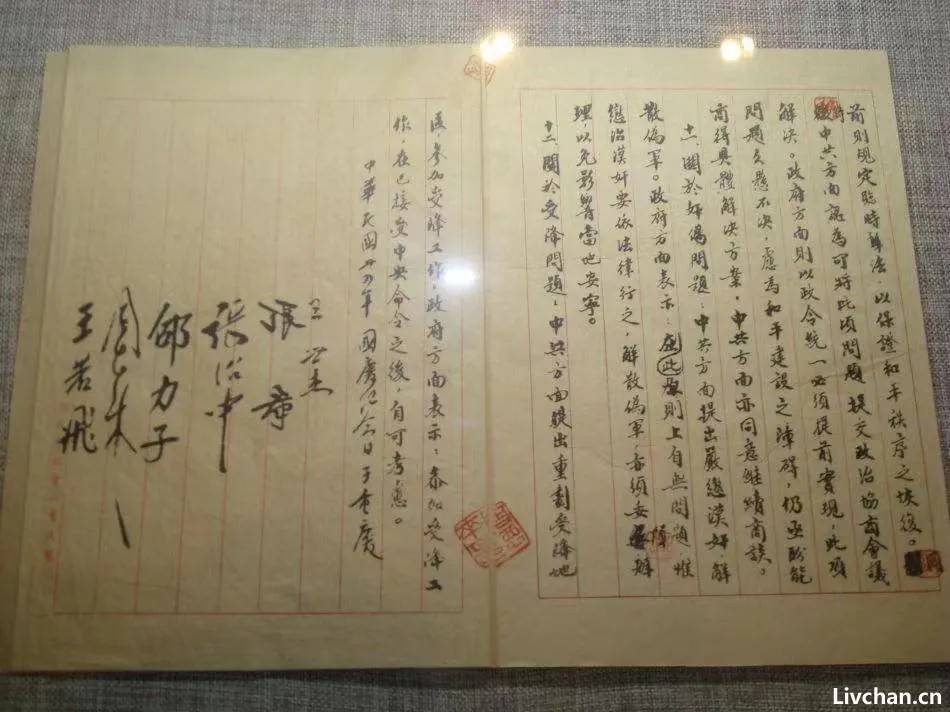 前則規定臨時辦法,以保證和平秩序之恢復。
中共方面認為可將此項問題提交政治協商會議
解決。政府方面則以政令統一必須提前實現,此項
問題久懸不決,慮為和平建設之障礙,仍亟盼能
商得具體解決方案。中共方面亦同意繼續商談。
十一、關於奸偽問題:中共方面提出嚴懲漢奸、解
散偽軍。政府方面表示:此原則上自無問題,惟
懲治漢奸要依法律行之,解散偽軍亦須妥慎辦
理,以免影響當地安寧。
十二、關於受降問題:中共方面提出重劃受降地
區,參加受降工作,政府方面表示:參加受降工
作,在已接受中央命令之後,自可考慮。
中華民國卅四年 國慶紀念日于重慶
王世杰
張 羣
張治中
邵力子
周恩來
王若飛
Livchan.cn